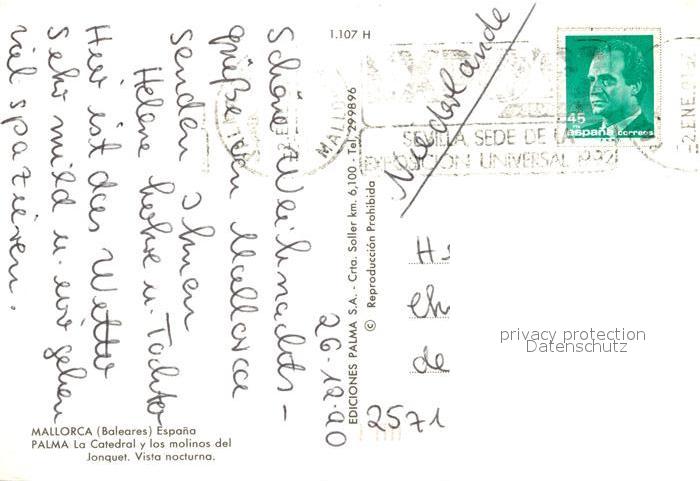 26-12-90
Schöne Weihnachts-
grüße von Mallorca
senden Ihnen
Helene u. Tochter
Hier ist das Wetter
sehr mild u. wir gehen
viel spazieren.
1.107 H
EDICIONES PALMA S.A. - Crta. Soller km. 6,100 - Tel. 299896
© Reproducción Prohibida
MALLORCA (Baleares) España
PALMA La Catedral y los molinos del
Jonquet. Vista nocturna.
SEVILLA, SEDE DE LA
EXPOSICION UNIVERSAL 1992
2 ENE
45
españa correos
Niederlande
H
de
2571
privacy protection
Datenschutz